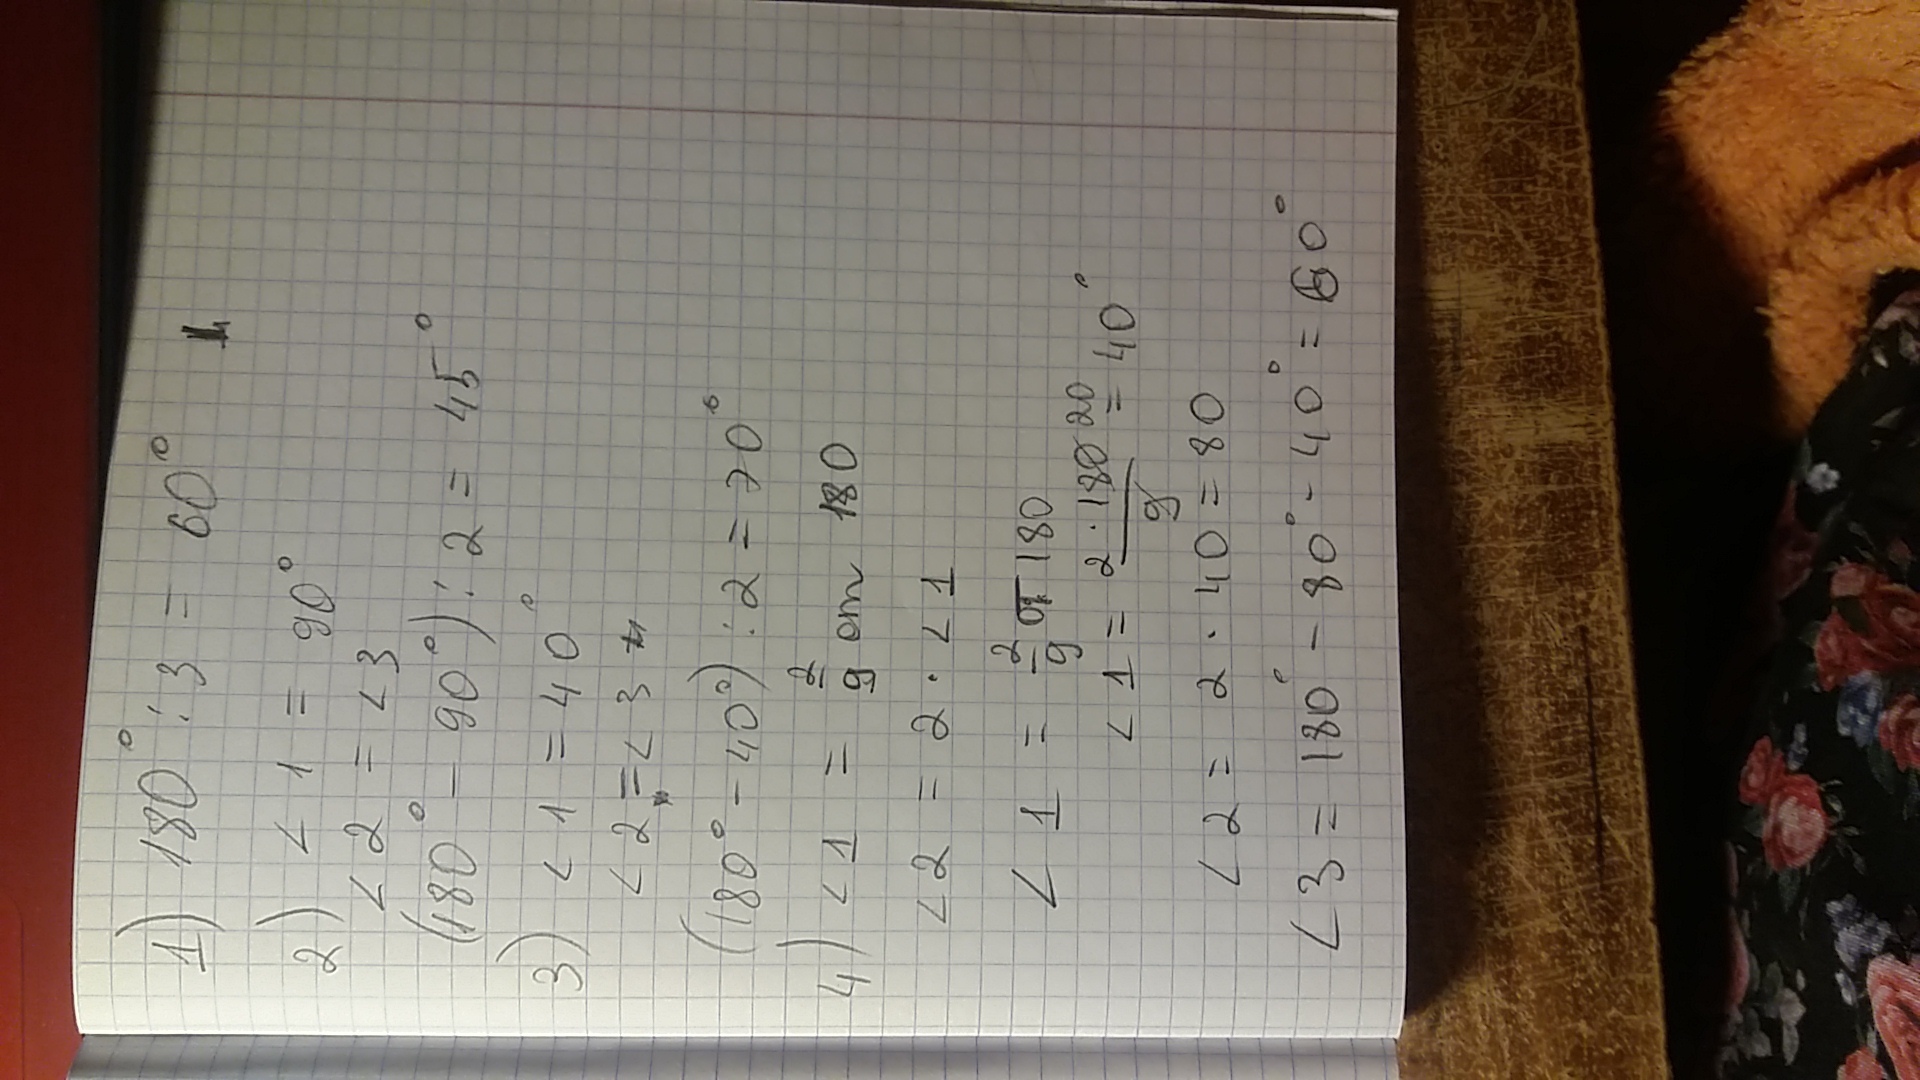 1) 180° : 3 = 60°
2) < 1 = 90°
< 2 = < 3
(180° - 90°) : 2 = 45°
3) < 1 = 40°
< 2 = < 3
(180° - 40°) : 2 = 70°
4) < 1 = 2/9 от 180
< 2 = 2 · < 1
< 1 = 2/9 от 180
< 1 = 2 · 180 20 / 9 = 40°
< 2 = 2 · 40 = 80
< 3 = 180° - 80° - 40° = 60°